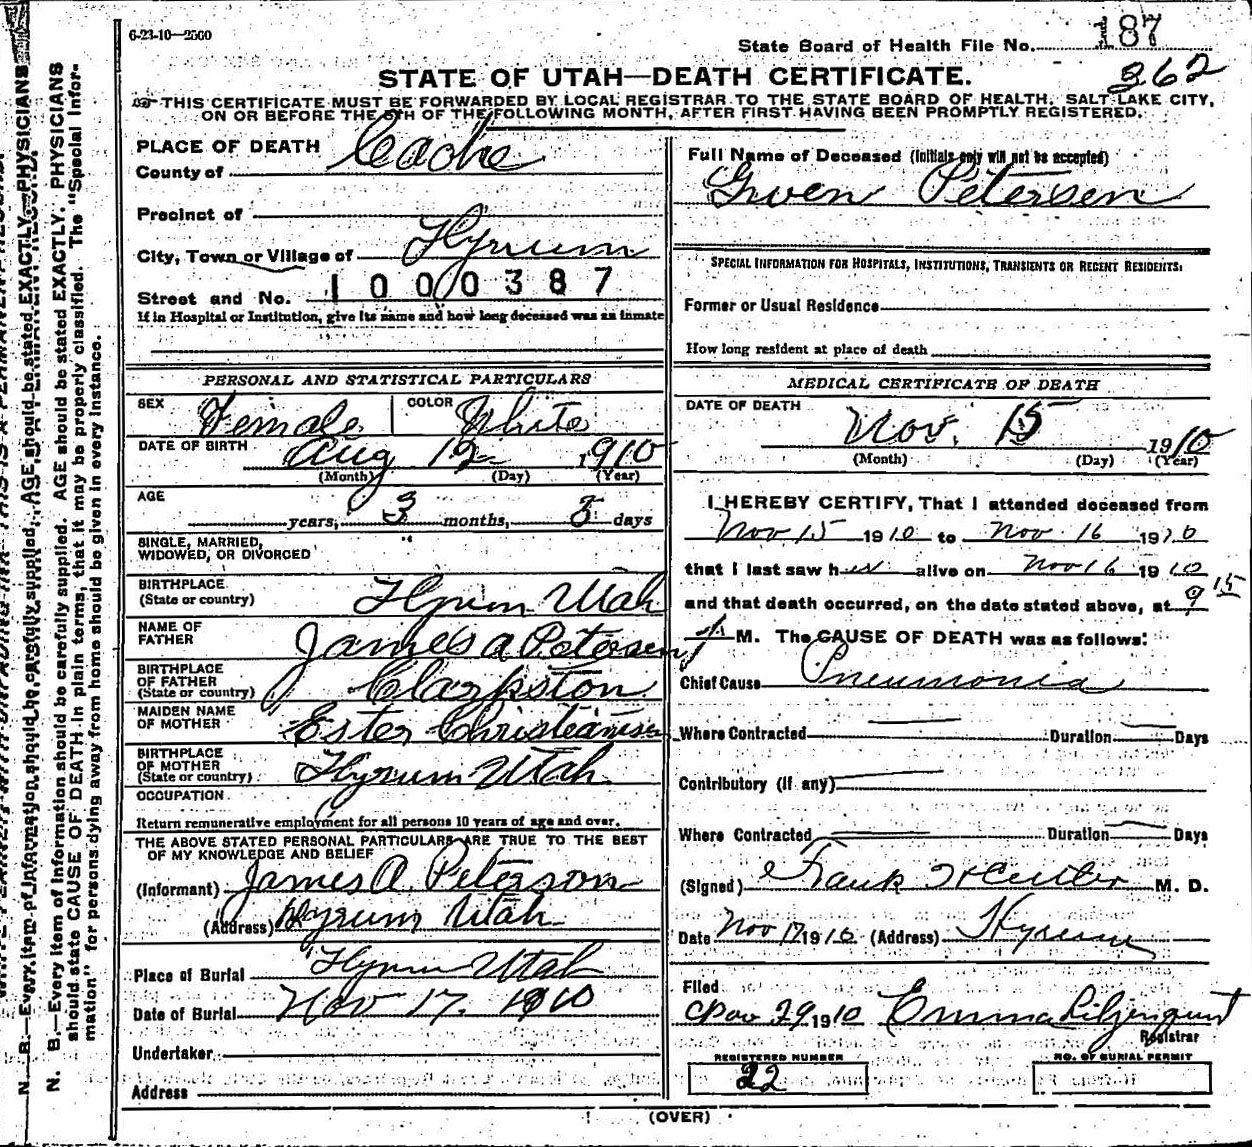 6-23-10—2500
State Board of Health File No. 187
362
STATE OF UTAH—DEATH CERTIFICATE.
THIS CERTIFICATE MUST BE FORWARDED BY LOCAL REGISTRAR TO THE STATE BOARD OF HEALTH, SALT LAKE CITY,
ON OR BEFORE THE 5TH OF THE FOLLOWING MONTH, AFTER FIRST HAVING BEEN PROMPTLY REGISTERED.
PLACE OF DEATH
County of Cache
Precinct of
City, Town or Village of Hyrum
Street and No. 1000387
If in Hospital or Institution, give its name and how long deceased was an inmate
PERSONAL AND STATISTICAL PARTICULARS
SEX Female COLOR White
DATE OF BIRTH Aug 12 1910
(Month) (Day) (Year)
AGE
years, 3 months, 3 days
SINGLE, MARRIED,
WIDOWED, OR DIVORCED
BIRTHPLACE
(State or country) Hyrum Utah
NAME OF
FATHER James A Petersen
BIRTHPLACE
OF FATHER
(State or country) Clarkston
MAIDEN NAME
OF MOTHER Ester Christiansen
BIRTHPLACE
OF MOTHER
(State or country) Hyrum Utah
OCCUPATION
Return remunerative employment for all persons 10 years of age and over.
THE ABOVE STATED PERSONAL PARTICULARS ARE TRUE TO THE BEST
OF MY KNOWLEDGE AND BELIEF
(Informant) James A. Peterson
(Address) Hyrum Utah
Place of Burial Hyrum Utah
Date of Burial Nov 17. 1910
Undertaker
Address
Full Name of Deceased (Initials only will not be accepted)
Gwen Petersen
SPECIAL INFORMATION FOR HOSPITALS, INSTITUTIONS, TRANSIENTS OR RECENT RESIDENTS:
Former or Usual Residence
How long resident at place of death
MEDICAL CERTIFICATE OF DEATH
DATE OF DEATH
Nov. 15 1910
(Month) (Day) (Year)
I HEREBY CERTIFY, That I attended deceased from
Nov 15 1910 to Nov. 16 1910
that I last saw her alive on Nov 16 1910
and that death occurred, on the date stated above, at 9 15
M. The CAUSE OF DEATH was as follows:
Chief Cause Pneumonia
Where Contracted Duration Days
Contributory (if any)
Where Contracted Duration Days
(Signed) Frank M. D.
Date Nov 17 1910 (Address) Hyrum
Filed
Nov 29 1910 Emma Liljenquist
Registrar
REGISTERED NUMBER
22
NO. OF BURIAL PERMIT
(OVER)
N. B.—Every item of information should be carefully supplied. AGE should be stated EXACTLY. PHYSICIANS
should state CAUSE OF DEATH in plain terms, that it may be properly classified. The "Special Infor-
mation" for persons dying away from home should be given in every instance.